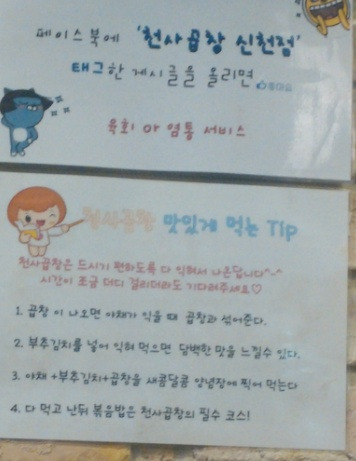 페이스북에 '천사곱창 신천점'
태그한 게시글을 올리면 좋아요
육회 or 염통 서비스
천사곱창 맛있게 먹는 Tip
천사곱창은 드시기 편하도록 다 익혀서 나온답니다^-^
시간이 조금 더디 걸리더라도 기다려주세요♡
1. 곱창 이 나오면 야채가 익을 때 곱창과 섞어준다.
2. 부추김치를 넣어 익혀 먹으면 담백한 맛을 느낄수 있다.
3. 야채 +부추김치+곱창을 새콤달콤 양념장에 찍어 먹는다
4. 다 먹고 난뒤 볶음밥은 천사곱창의 필수 코스!